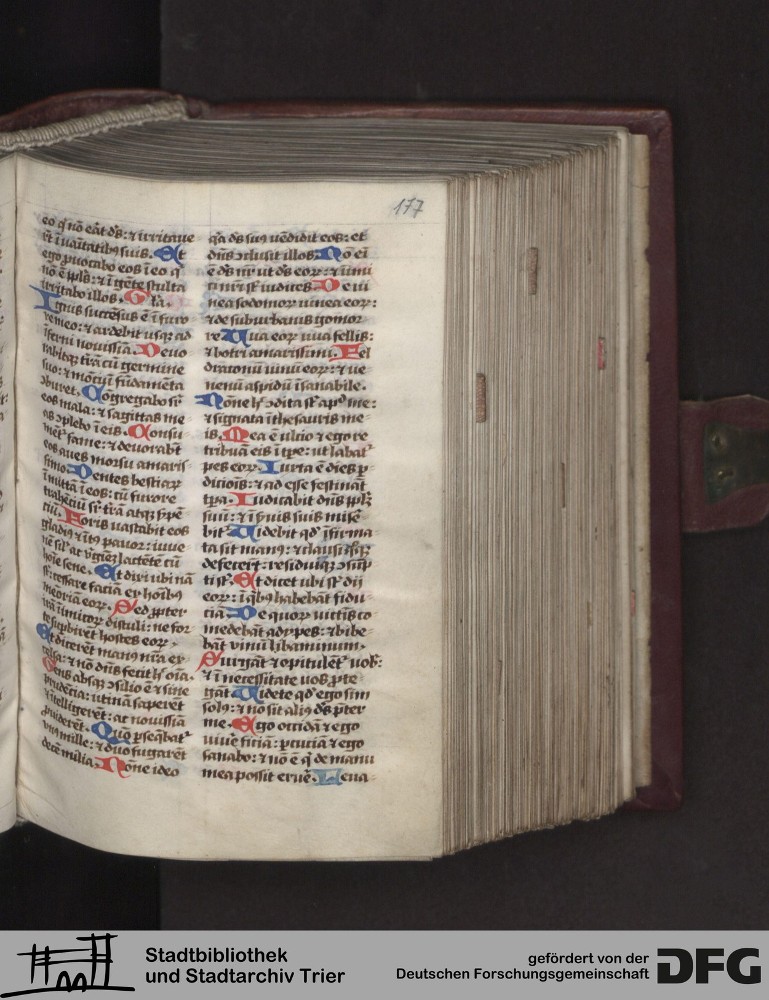 177
eo qͥ nō eāt ds̄: ⁊ irritaue
rt̄ ī uāitatibꝫ suis. Et
ego ꝓuocabo eos ī eo qͥ
nō ē ipl̄s: ⁊ ī gēte stulta
irritabo illos. Gl̄a.
Ignis succēsus ē ī furo
re meo: ⁊ ardebit usqꝫ ad
īferni nouissīa. Deuo
rabitqꝫ tr̄ā cū germine
suo: ⁊ mōtiū fūdamēta
ↄburet. Cōgregabo sr̄
eos mala: ⁊ sagittas me
as ↄplebo ī eis. Cōsu
mēt̄ fame: ⁊ deuorabt̄
eos aues morsu amaris
simo. Dentes bestiaꝝ
īmittā ī eos: cū furore
trahētiū sr̄ tr̄ā atqꝫ ẜpē
tiū. Foris uastabit eos
gladiꝰ ⁊ ītꝰ pauor: iuue
nē sil̄ ac v̓ginē lactētē cū
hoīe sene. Et dixi ubi nā
st̄: cessare faciā ex hoībꝫ
meōriā eoꝝ. Sed ꝓpter
irā inimicoꝝ distuli: ne for
te suꝑbirēt hostes eoꝝ.
Et dicerēt manꝰ nr̄a ex
celsa: ⁊ nō dn̄s fecit h̄ oīa.
Gens absqꝫ ↄsilio ē ⁊ sine
prudētia: utinā saperēt
⁊ ītelligerēt: ac nouissīa
ꝓuiderēt. Quō ꝑseqͣbat᷑
vnꝰ mille: ⁊ duo fugarēt
decē milia. Nōne ideo
qͥa ds̄ suꝰ uēdidit eos: et
dn̄s ↄclusit illos. Nō ei
ē ds̄ nr̄ ut ds̄ eoꝝ: ⁊ inimi
ci nr̄i st̄ iudices. De ui
nea sodomoꝝ uinea eoꝝ:
⁊ de suburbanis gomor
re. Uua eoꝝ uua fellis:
⁊ botri amarissimi. Fel
draconū uinū eoꝝ: ⁊ ue
nenū aspidū īsanabile.
Nōne h̄ ↄdita st̄ apͩ me:
⁊ signata ī thesauris me
is. Mea ē ulcio ⁊ ego re
tribuā eis ī tp̄e: ut labat᷑
pes eoꝝ. Iuxta ē dies ꝑ
ditiois: ⁊ ad esse festināt
tp̄a. Iudicabit dn̄s ipl̄ꝫ
suū: ⁊ ī ẜuis suis mise
bit᷑. Uidebit qd̓ īfirma
ta sit manꝰ: ⁊ clausi qꝫ
defecert̄: residuiqꝫ ↄsūp
ti st̄. Et dicet ubi st̄ dij
eoꝝ: ī qͥbꝫ habebāt fidu
ciā. De quoꝝ uictīs co
medebāt adipes: ⁊ bibe
bāt vinū libaminum.
Surgāt ⁊ opitulēt᷑ uob̄:
⁊ ī necessitate uos ꝓte
gāt. Uidete qd̓ ego sim
solꝰ: ⁊ nō sit aliꝰ ds̄ pter
me. Ego occidā ⁊ ego
uiuē faciā: ꝑcutiā ⁊ ego
sanabo: ⁊ nō ē qͥ de manu
mea possit eruē. Leua
Stadtbibliothek
und Stadtarchiv Trier
gefördert von der
Deutschen Forschungsgemeinschaft
DFG